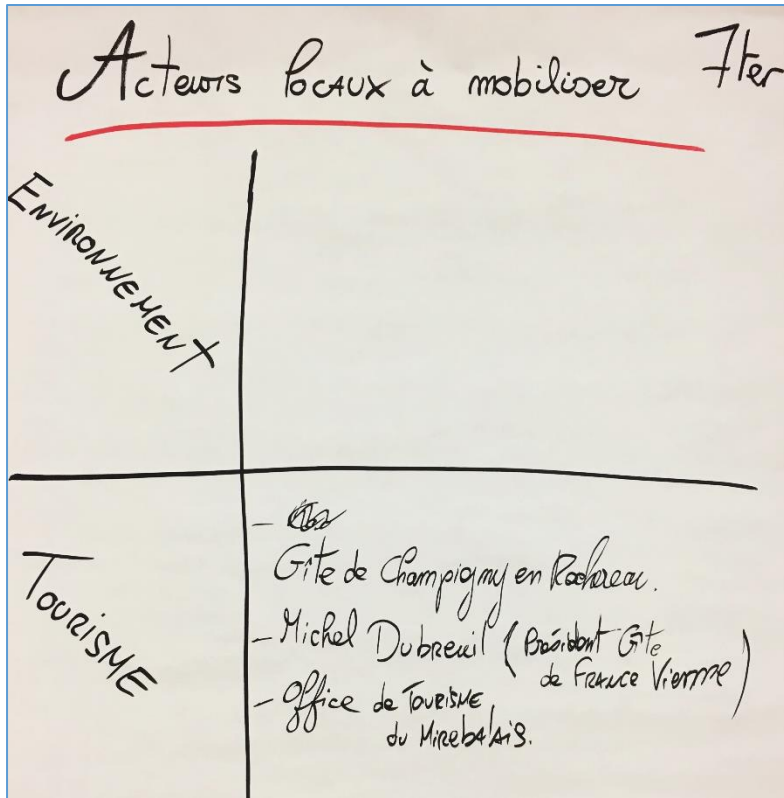 Acteurs locaux à mobiliser 7ter
ENVIRONNEMENT
TOURISME
-
Gîte de Champigny en Rochereau.
- Michel Dubreuil (Président Gîte
de FRANCE Vienne)
- Office de TOURISME
du Mirebalais.